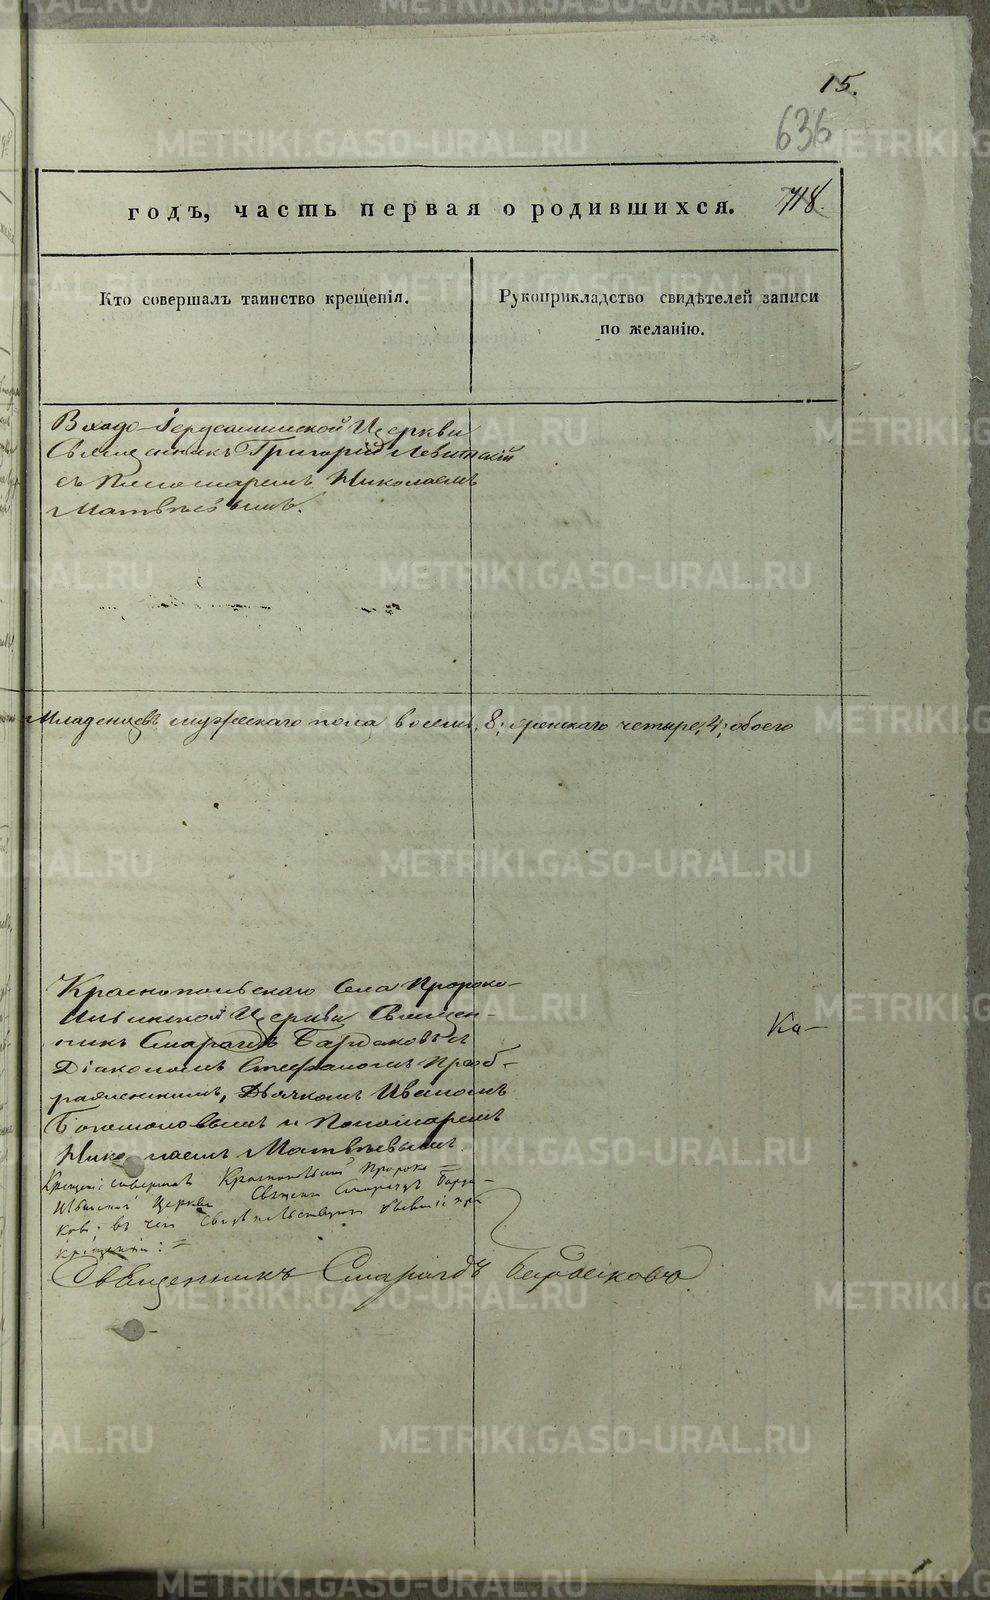 15.
636
718.
годъ, часть первая о родившихся.
Кто совершалъ таинство крещенія.
Рукоприкладство свидѣтелей записи
по желанію.
Входо-Іерусалимской Церкви
Священникъ Григорій Левитскій
съ Пономаремъ Николаемъ
Матвѣевымъ.
Младенцевъ мужескаго пола восемь, 8; женскаго четыре, 4; обоего
Краснопольскаго Села Пророко-
Ильинской Церкви Священ-
никъ Смарагдъ Бардаковъ съ
Діакономъ Стефаномъ Преоб-
раженскимъ, Дьячкомъ Иваномъ
Богомоловымъ и Пономаремъ
Николаемъ Матвѣевымъ.
Ка-
Крещеніе совершалъ Краснопольской Пророко-
Ильинской Церкви Священ. Смарагдъ Барда-
ковъ; въ чемъ свидѣтельствуютъ бывшіе при
крещеніи:
Священникъ Смарагдъ Бардаковъ
METRIKI.GASO-URAL.RU